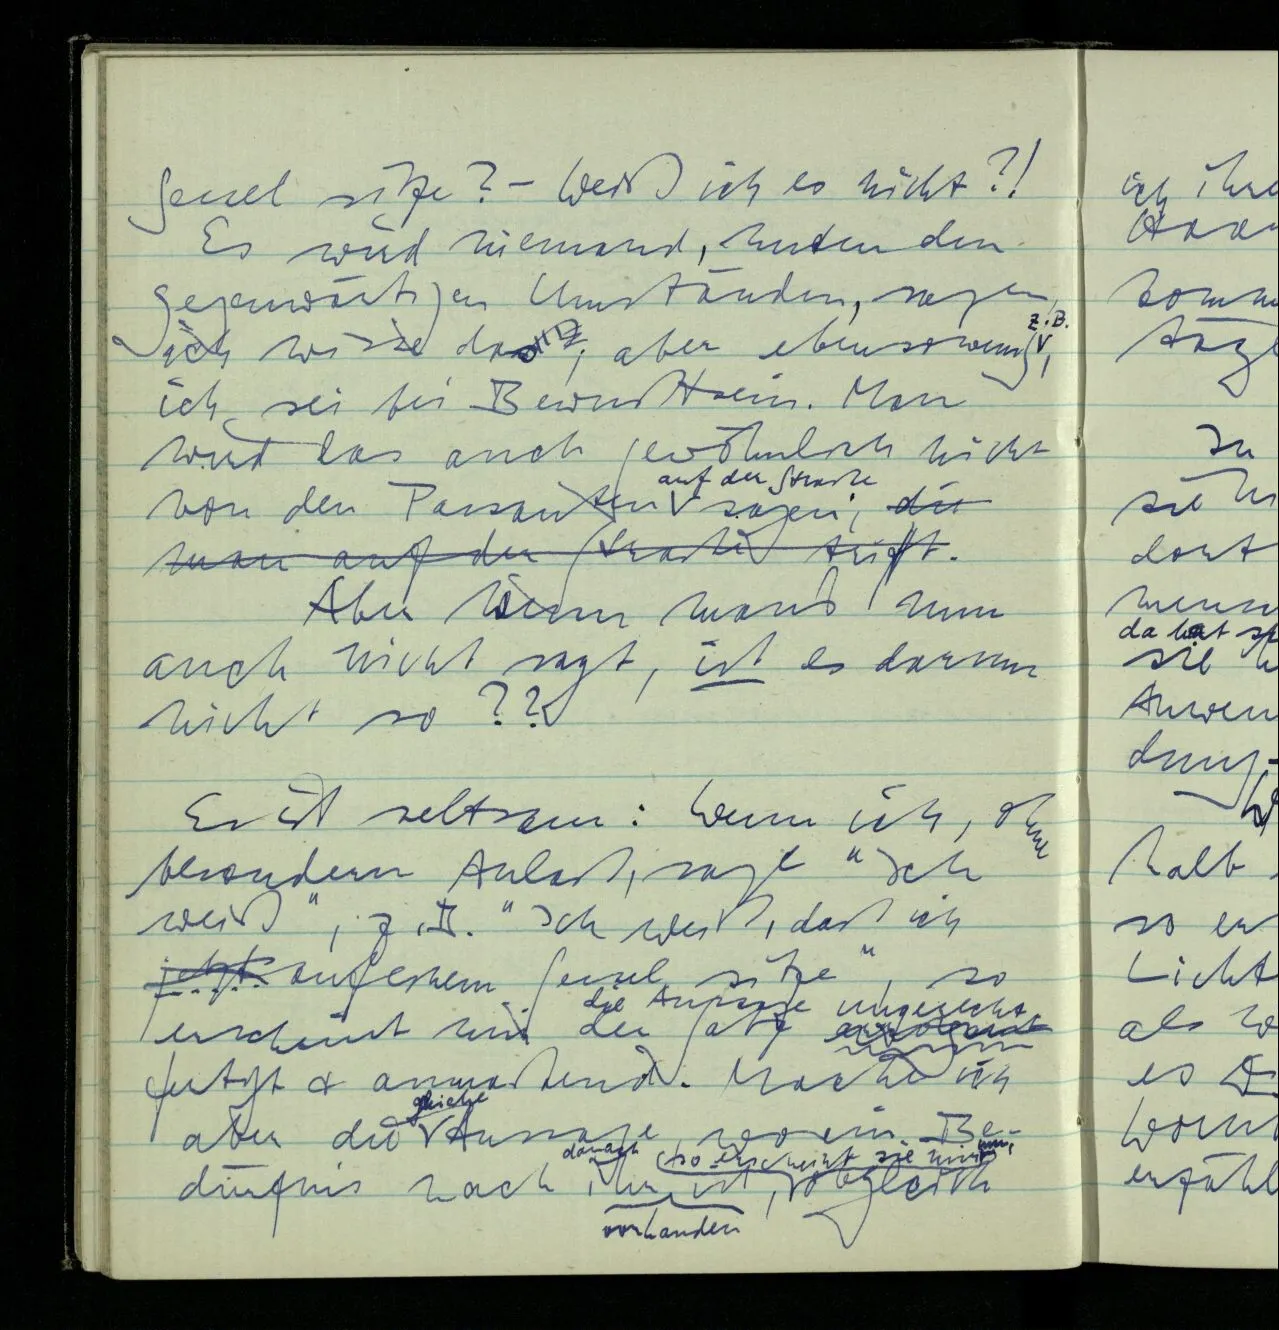 Sessel sitze? – Weiß ich es nicht?!
Es wird niemand, unter den
gegenwärtigen Umständen, sagen,
ich wisse das; aber ebensowenig z.B.,
ich sei bei Bewußtsein. Man
wird das auch gewöhnlich nicht
auf der Straße
von den Passanten sagen, die
man auf der Straße trifft.
Aber wenn man's nun
auch nicht sagt, ist es darum
nicht so??
Es ist seltsam: Wenn ich, ohne
besondern Anlaß, sage "Ich
weiß", z.B. "Ich weiß, daß ich
jetzt auf einem Sessel sitze", so
die Aussage ungerecht-
erscheint mir der Satz
fertigt & anmaßend. Mache ich
gleiche
aber die Aussage, wo ein Be-
danach so erscheint sie mir nun,
dürfnis nach ihr ist, obgleich
vorhanden
ich
Haa
komm
Zu
sie
dort
da hat
sie
Anwen
dung
halb
so
Licht
als
es
erzähl